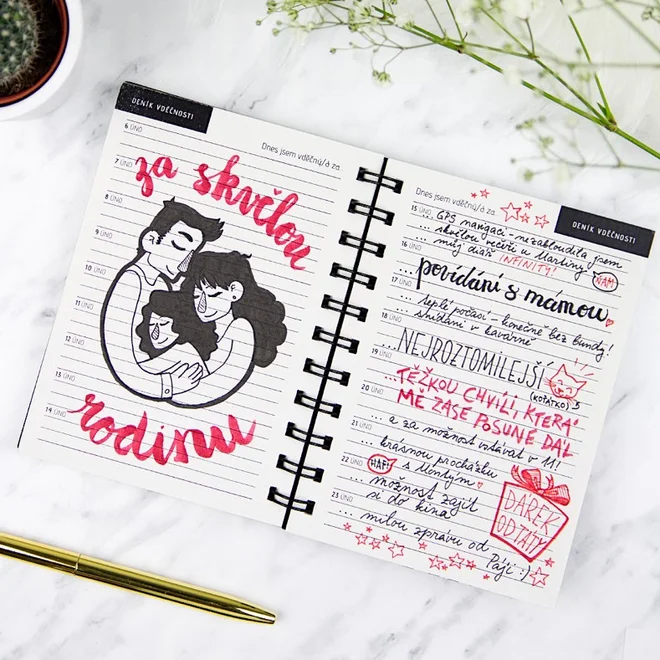 DENÍK VDĚČNOSTI
Dnes jsem vděčný/á za
6 ÚNO
7 ÚNO
za skvělou
8 ÚNO
9 ÚNO
10 ÚNO
11 ÚNO
12 ÚNO
13 ÚNO
14 ÚNO
rodinu
Dnes jsem vděčný/á za
DENÍK VDĚČNOSTI
15 ÚNO
... GPS navigaci - nezabloudila jsem
... skvělou večeři u Martiny!
ŇAM
16 ÚNO
... můj diář INFINITY!
... povídání s mámou
17 ÚNO
... teplé počasí - konečně bez bundy!
18 ÚNO
... snídani v kavárně
19 ÚNO
... NEJROZTOMILEJŠÍ
(KOŤÁTKO)
20 ÚNO
... TĚŽKOU CHVÍLI, KTERÁ
MĚ ZASE POSUNE DÁL
21 ÚNO
... a za možnost vstávat v 11!
... krásnou procházku
22 ÚNO
HAF!
s Montym
... možnost zajít
23 ÚNO
si do kina
DÁREK
OD TÁTY
... milou zprávu od
Páji :)